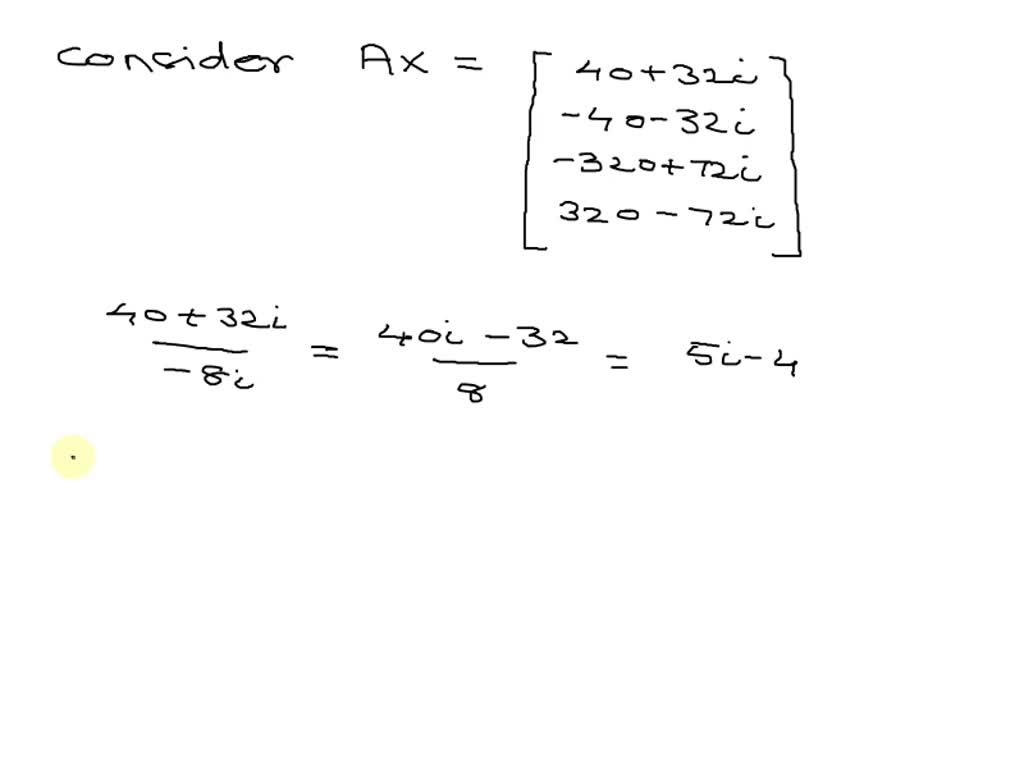 consider Ax = [ 40+32i
-40-32i
-320+72i
320-72i ]
40+32i / -8i = 40i-32 / 8 = 5i-4